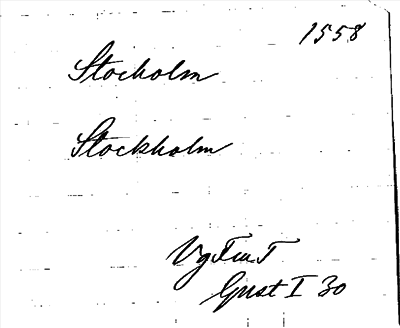 1558
Stocholm
Stockholm
Vg Fru T
Gust I 30